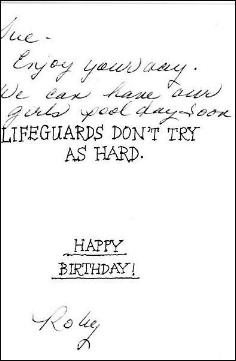 Sue-
Enjoy your day.
We can have our
girls pool day soon
LIFEGUARDS DON'T TRY
AS HARD.
HAPPY
BIRTHDAY!